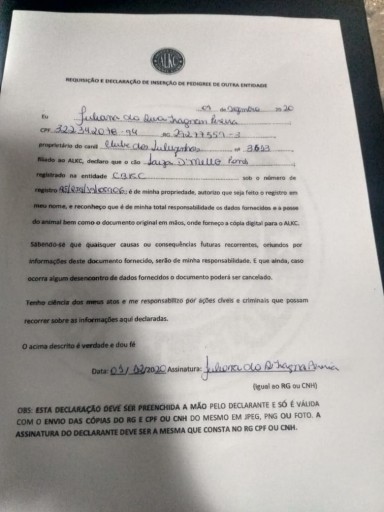 ALKC
REQUISIÇÃO E DECLARAÇÃO DE INSERÇÃO DE PEDIGREE DE OUTRA ENTIDADE
de 20
Eu Juliana da
CPF 322342018-94 RG
proprietário do canil Clube dos nº 3653
filiado ao ALKC, declaro que o cão
registrado na entidade sob o número de
registro é de minha propriedade, autorizo que seja feito o registro em
meu nome, e reconheço que é de minha total responsabilidade os dados fornecidos e a posse
do animal bem como o documento original em mãos, onde forneço a cópia digital para o ALKC.
Sabendo-se que quaisquer causas ou consequências futuras recorrentes, oriundos por
informações deste documento fornecido, serão de minha responsabilidade. E que ainda, caso
ocorra algum desencontro de dados fornecidos o documento poderá ser cancelado.
Tenho ciência dos meus atos e me responsabilizo por ações cíveis e criminais que possam
recorrer sobre as informações aqui declaradas.
O acima descrito é verdade e dou fé
Data: Assinatura: Juliana da
(igual ao RG ou CNH)
OBS: ESTA DECLARAÇÃO DEVE SER PREENCHIDA A MÃO PELO DECLARANTE E SÓ É VÁLIDA
COM O ENVIO DAS CÓPIAS DO RG E CPF OU CNH DO MESMO EM JPEG, PNG OU FOTO. A
ASSINATURA DO DECLARANTE DEVE SER A MESMA QUE CONSTA NO RG CPF OU CNH.